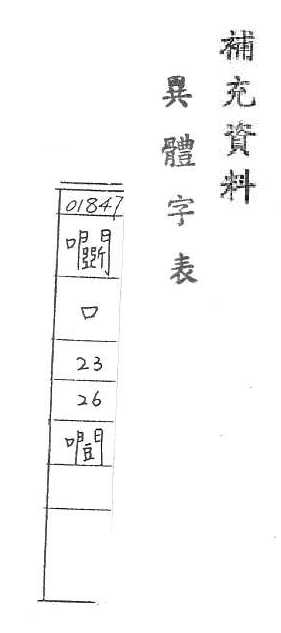 補充資料
異體字表
01847
口
23
26